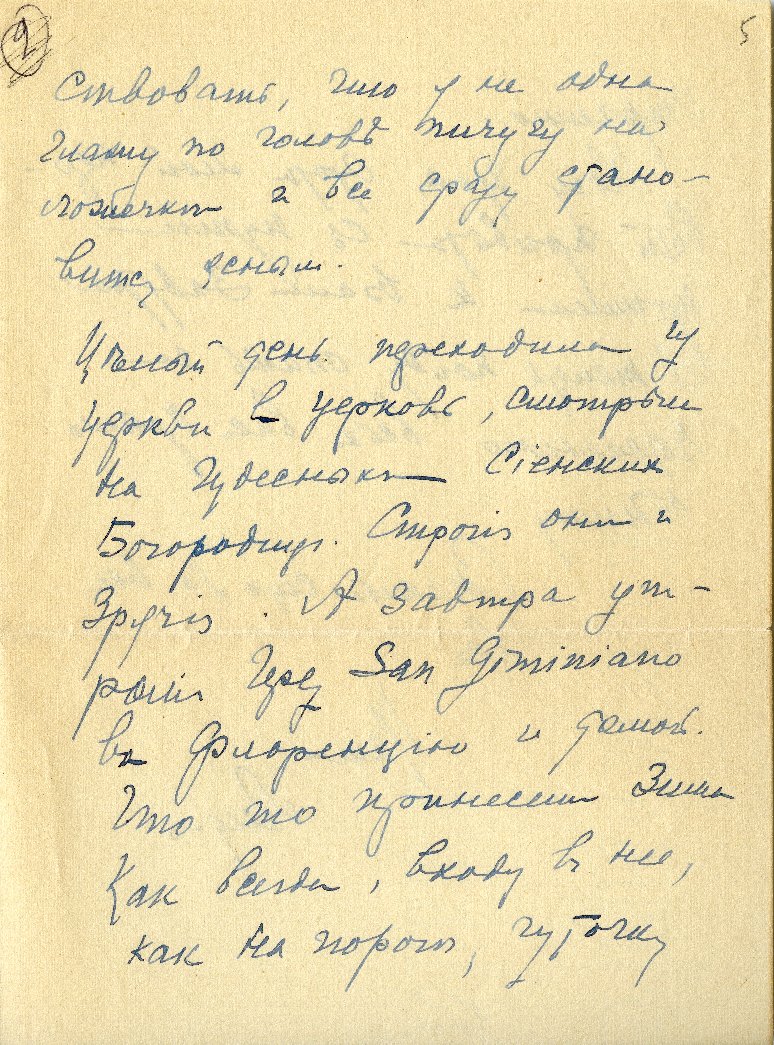 2
5
ствовать, что я не одна
глажу по головѣ пичугу на
ложечки и все сразу стано-
вится ясным.
Цѣлый день переходила из
церкви в церковь, смотрѣли
на чудесных Сіенских
Богородиц. Строгія они и
Зрячія. А завтра ут-
ром через San Giminiano
въ Флоренцію и домой.
Что то принесет Зима
Как всегда, вхожу въ нее,
как на порогъ, чуточку